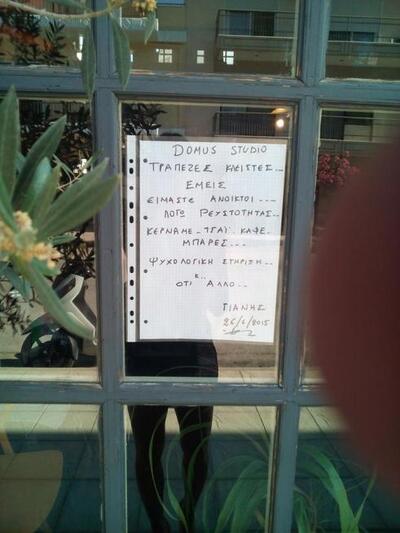 DOMUS STUDIO
ΤΡΑΠΕΖΕΣ ΚΛΕΙΣΤΕΣ...
ΕΜΕΙΣ
ΕΙΜΑΣΤΕ ΑΝΟΙΚΤΟΙ....
ΛΟΓΩ ΡΕΥΣΤΟΤΗΤΑΣ..
ΚΕΡΝΑΜΕ - ΤΣΑΪ. ΚΑΦΕ.
ΜΠΑΡΕΣ...
ΨΥΧΟΛΟΓΙΚΗ ΣΤΗΡΙΞΗ..
Κ..
ΟΤΙ ΑΛΛΟ..
ΓΙΑΝΗΣ
26/6/2015